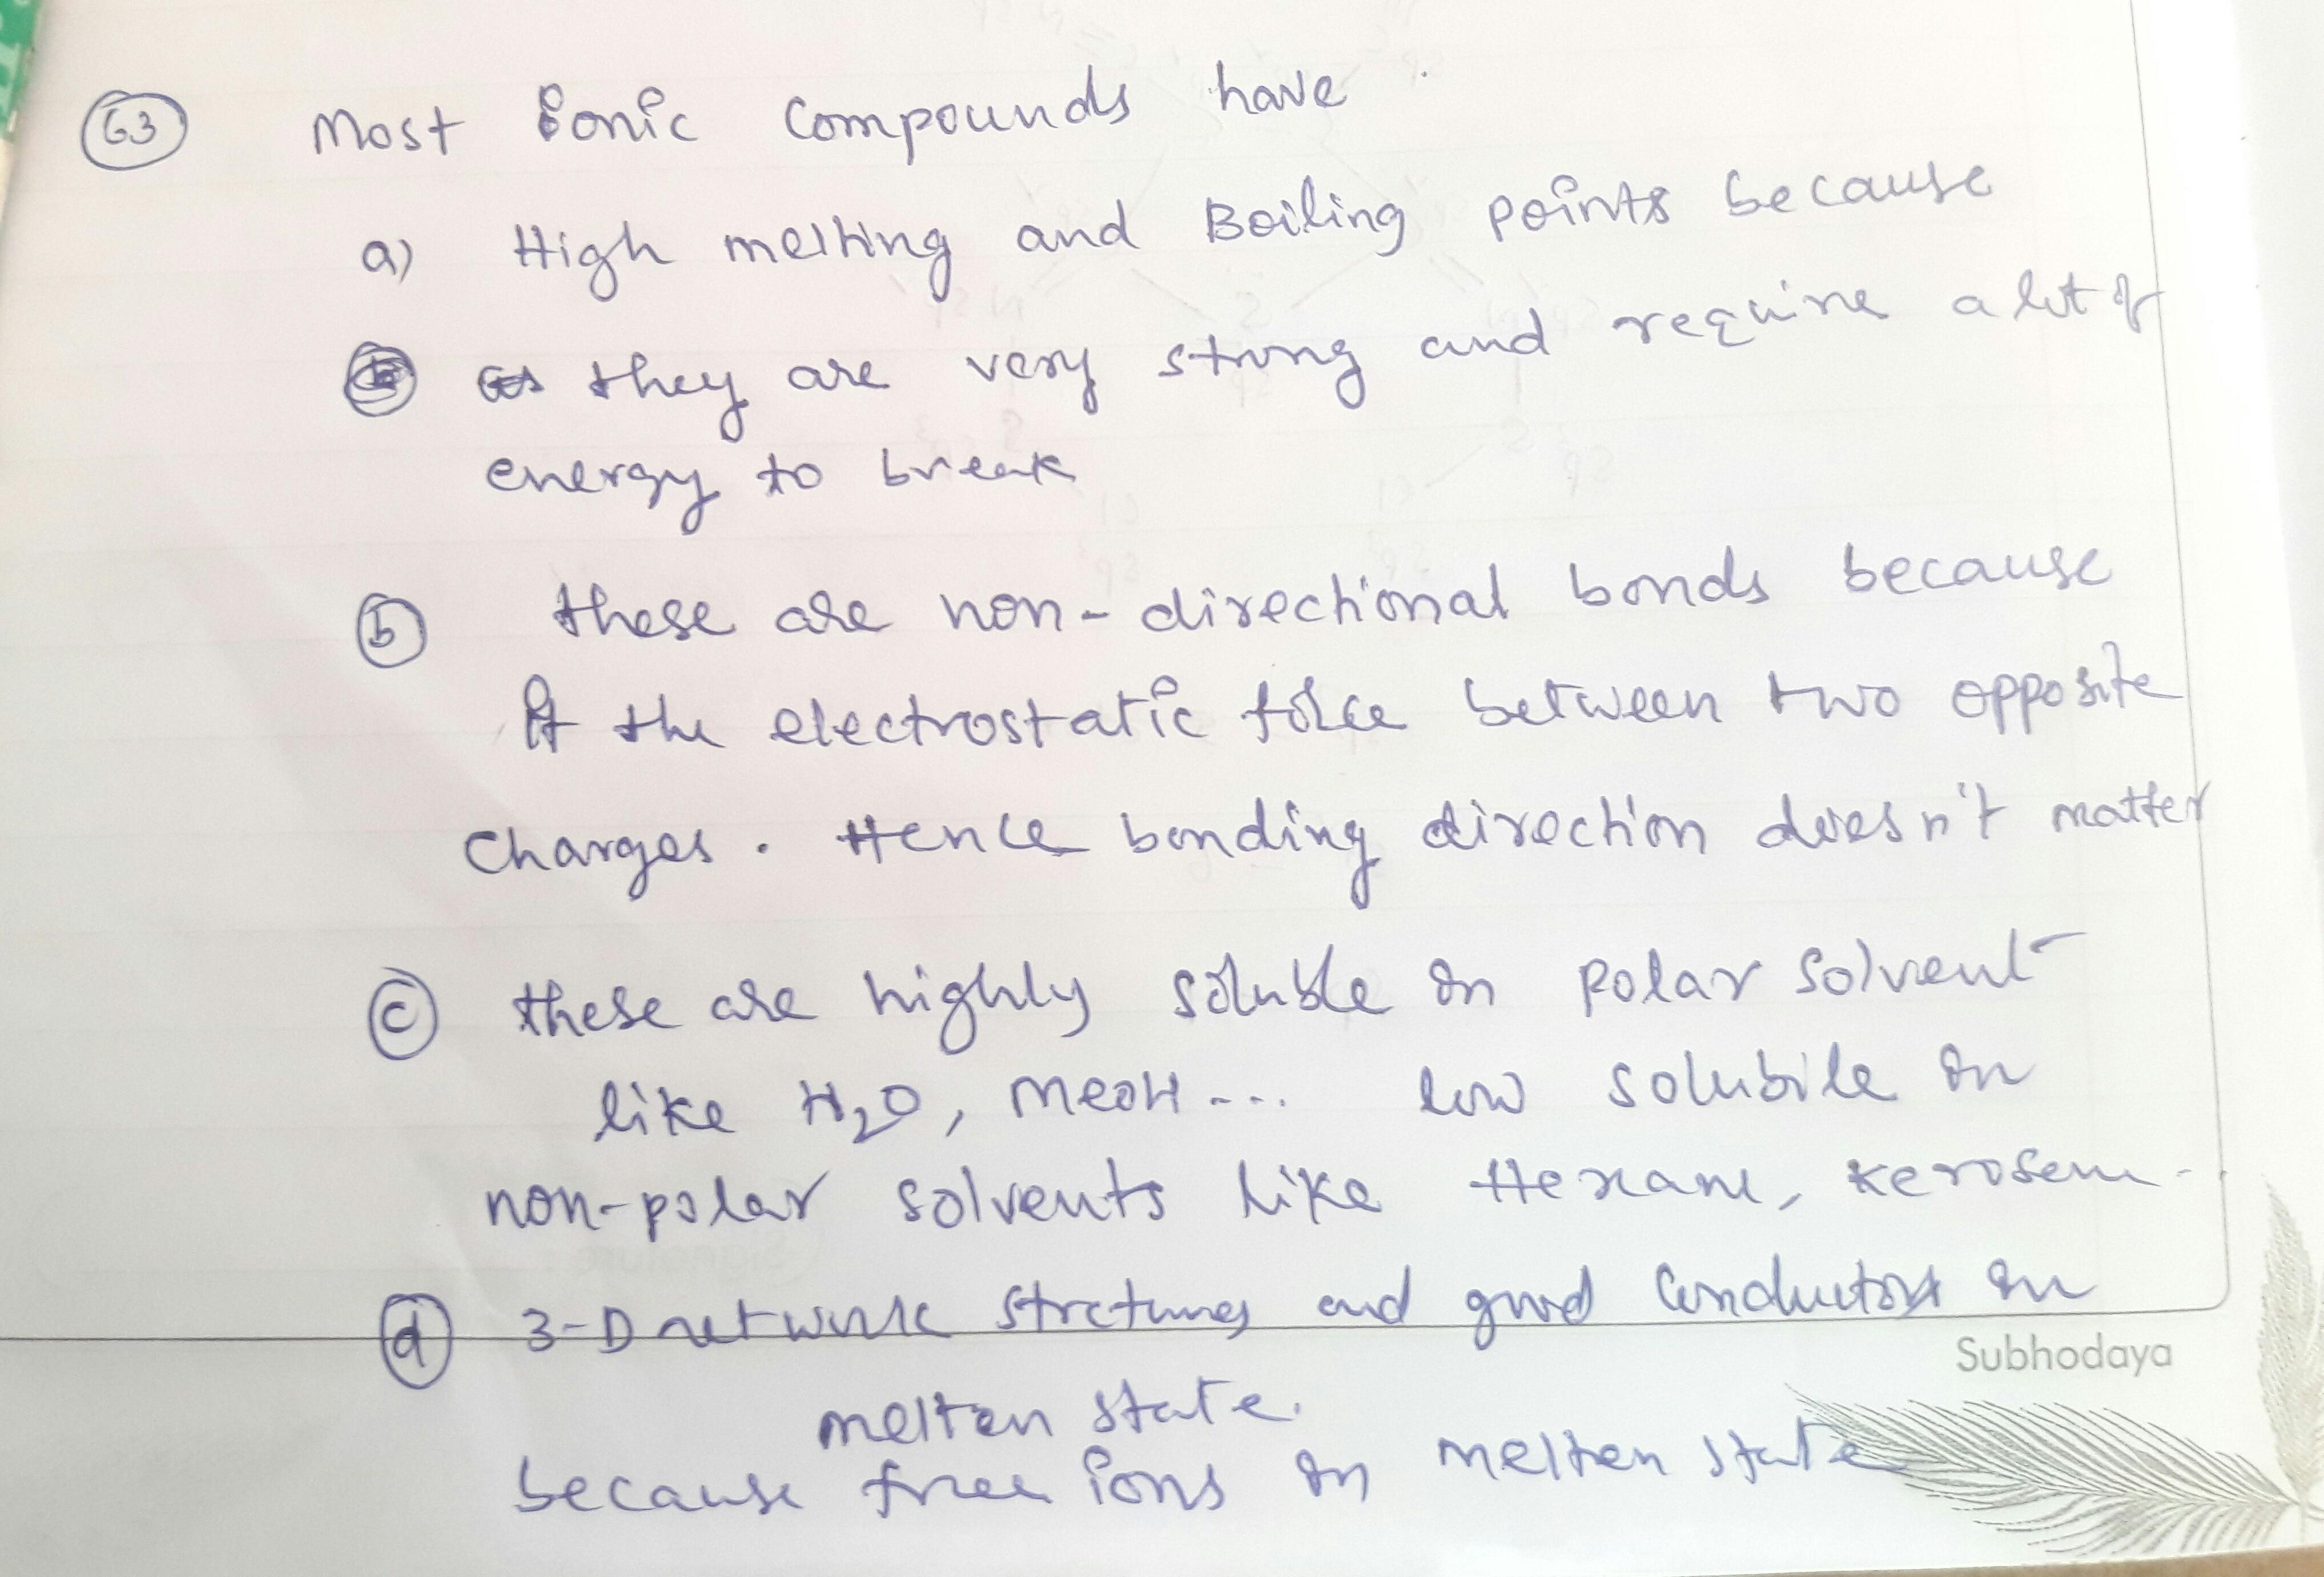 63 Most ionic Compounds have
a) High melting and Boiling points because
they are very strong and require a lot of
energy to break
b these are non-directional bonds because
It the electrostatic force between two opposite
Charges. Hence bonding direction doesn't matter
c these are highly soluble in polar solvent
like H2O, MeOH .... low solubile in
non-polar solvents like Hexane, kerosene.
d 3-D network strctures and good Conductors in
Subhodaya
melten state.
because free ions in melten state